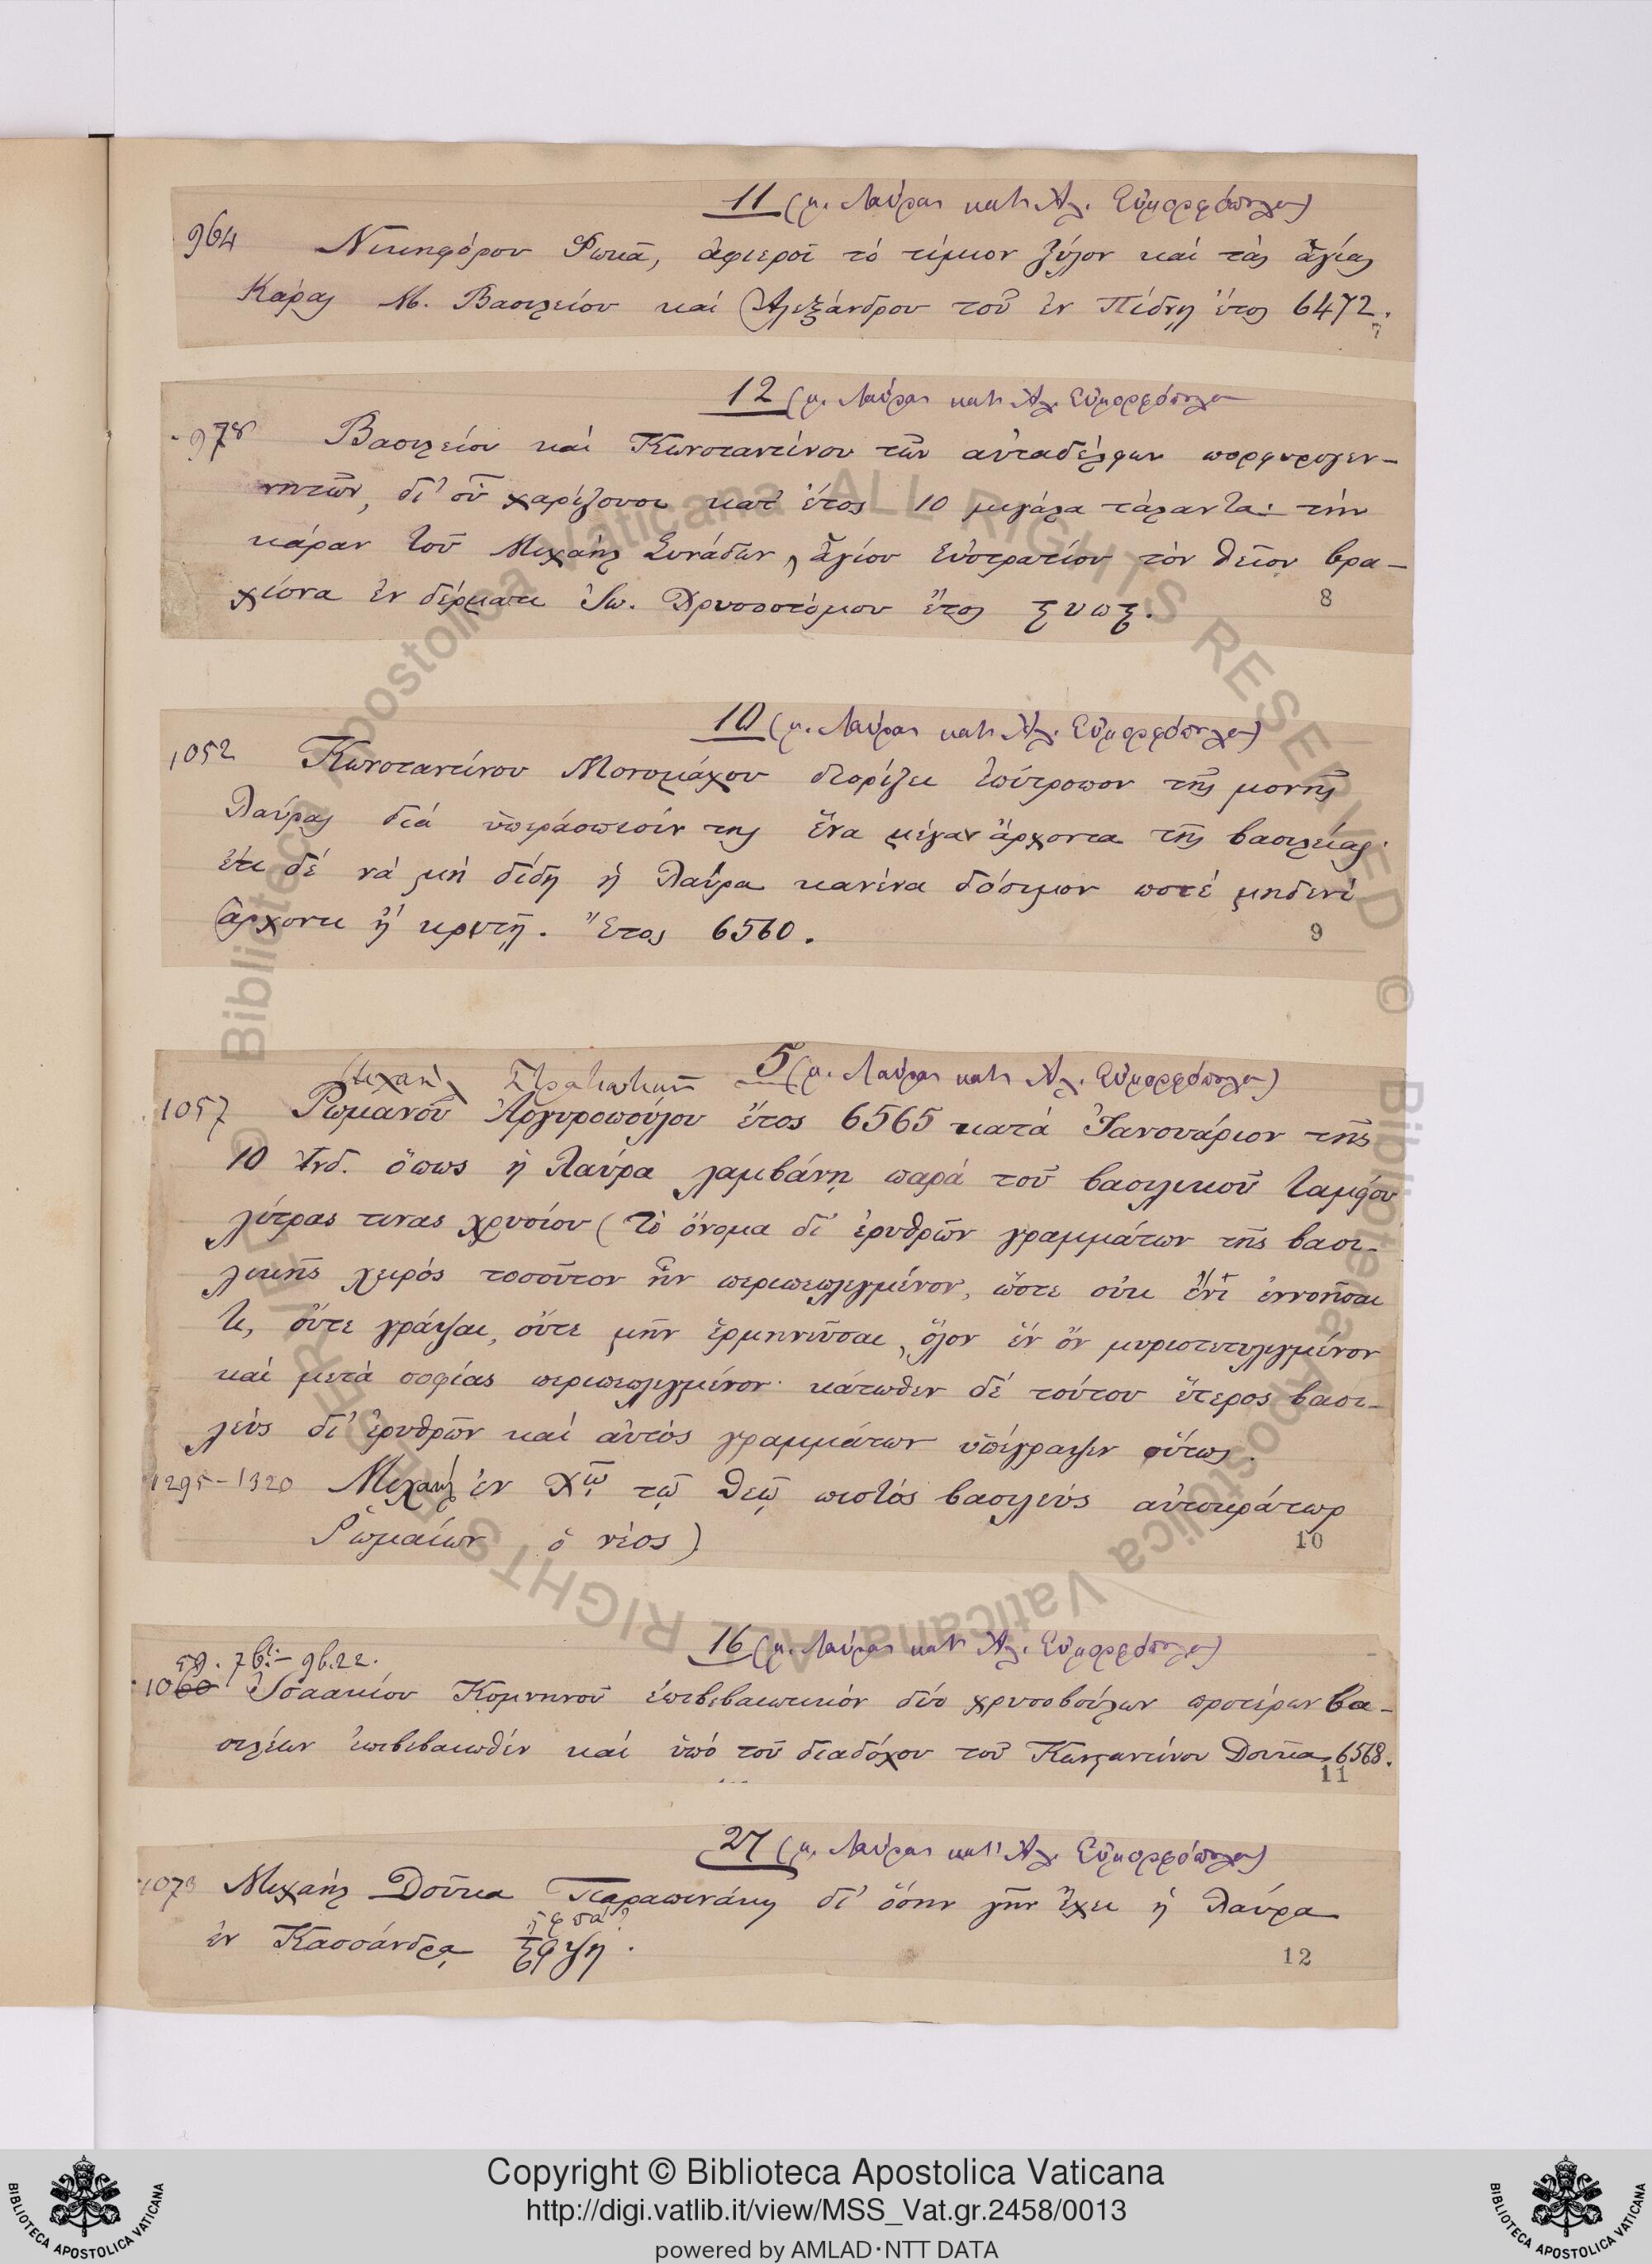 11 (μ. Λαύρας κατ' Ἀλ. Εὐμορφόπουλον)
964 Νικηφόρου Φωκᾶ, ἀφιεροῖ τό τίμιον ξύλον καί τάς ἁγίας
Κάρας Μ. Βασιλείου καί Ἀλεξάνδρου τοῦ ἐν Πίδνῃ ἔτος 6472.
7
12 (μ. Λαύρας κατ' Ἀλ. Εὐμορφόπουλον
978 Βασιλείου καί Κωνσταντίνου τῶν αὐταδέλφων πορφυρογεν-
νητῶν, δι' οὗ χαρίζουσι κατ' ἔτος 10 μεγάλα τάλαντα: τήν
κάραν τοῦ Μιχαήλ Συνάδων, ἁγίου Εὐστρατίου τόν θεῖον βρα-
χίονα ἐν δέρματι Ἰω. Χρυσοστόμου ἔτος ςυπς.
8
10 (μ. Λαύρας κατ' Ἀλ. Εὐμορφόπουλον)
1052 Κωνσταντίνου Μονομάχου διορίζει ἐπίτροπον τῆς μονῆς
Λαύρας διά ὑπεράσπισίν της ἕνα μέγαν ἄρχοντα τῆς βασιλείας·
ἔτι δέ νά μή δίδῃ ἡ Λαύρα κανένα δόσιμον ποτέ μηδενί
ἄρχοντι ἤ κριτῇ. Ἔτος 6560.
9
5 (μ. Λαύρας κατ' Ἀλ. Εὐμορφόπουλον)
Μιχαήλ Στρατιωτικοῦ
1057 Ῥωμανοῦ Ἀργυροπούλου ἔτος 6565 κατά Ἰανουάριον τῆς
10 Ἰνδ. ὅπως ἡ Λαύρα λαμβάνῃ παρά τοῦ βασιλικοῦ ταμείου
λίτρας τινας χρυσίου (τό ὄνομα δι' ἐρυθρῶν γραμμάτων τῆς βασι-
λικῆς χειρός τοσοῦτον ἦν περιπεπλεγμένον, ὥστε οὐκ ἔνι ἐννοῆσαι
τι, οὔτε γράψαι, οὔτε μήν ἑρμηνεῦσαι, ὅλον ἕν ὄν μυριοτετυλιγμένον
καί μετά σοφίας περιπεπλεγμένον· κάτωθεν δέ τούτου ἕτερος βασι-
λεύς δι' ἐρυθρῶν καί αὐτός γραμμάτων ὑπέγραψεν οὕτως.
1295-1320 Μιχαήλ ἐν Χῷ τῷ θεῷ πιστός βασιλεύς αὐτοκράτωρ
Ῥωμαίων ὁ νέος)
10
16 (μ. Λαύρας κατ' Ἀλ. Εὐμορφόπουλον)
59. 7β: – 96.22.
1060 Ἰσαακίου Κομνηνοῦ ἐπιβεβαιωτικόν δύο χρυσοβούλων προτέρων βα-
σιλέων ἐπιβεβαιωθέν καί ὑπό τοῦ διαδόχου του Κωνσταντίνου Δούκα 6568.
11
27 (μ. Λαύρας κατ' Ἀλ. Εὐμορφόπουλον)
1073 Μιχαήλ Δοῦκα Παραπινάκη δι' ὅσην γῆν ἔχει ἡ Λαύρα
ςφπα?
ἐν Κασσάνδρᾳ ςϟψη.
12
© Biblioteca Apostolica Vaticana ALL RIGHTS RESERVED © Biblioteca Apostolica Vaticana ALL RIGHTS RESERVED
Copyright © Biblioteca Apostolica Vaticana
http://digi.vatlib.it/view/MSS_Vat.gr.2458/0013
powered by AMLAD·NTT DATA
BIBLIOTECA APOSTOLICA VATICANA
BIBLIOTECA APOSTOLICA VATICANA